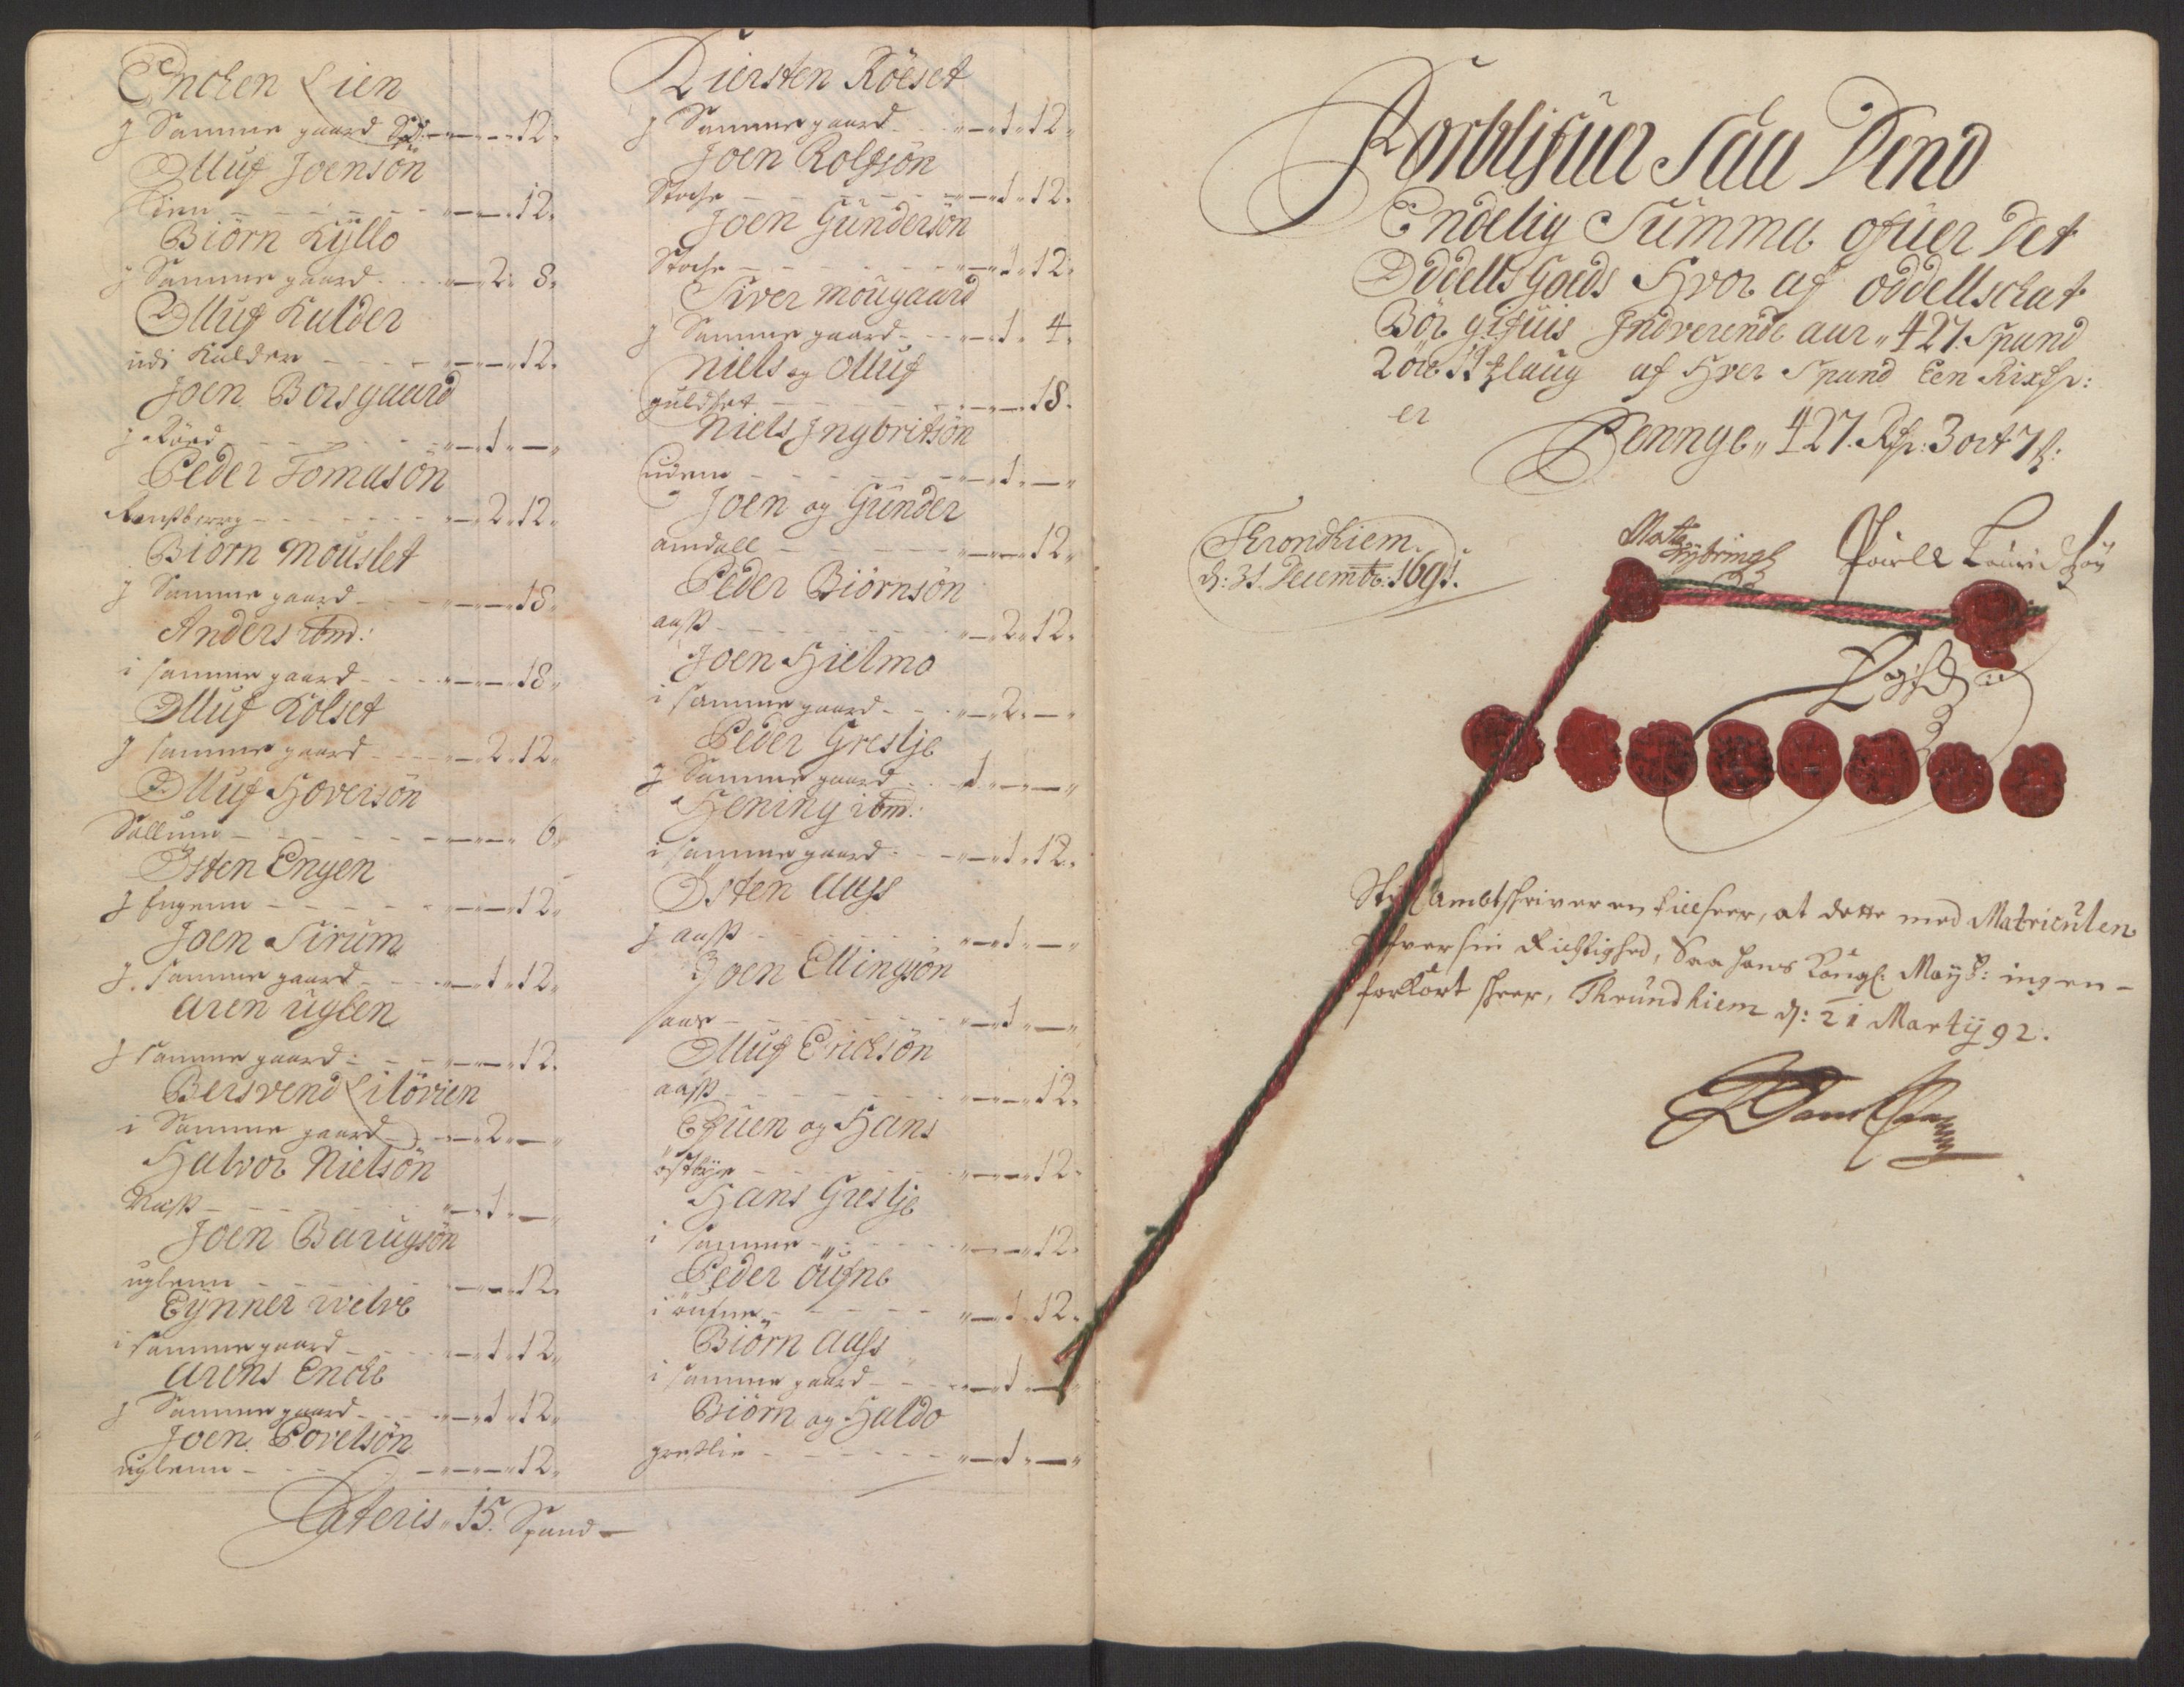 Enchen Lien
J Samme gaard - - - 12.
Olluf Joensön
Lien - - - 12.
Biörn Kÿllo
J Samme gaard - - - 2. 8.
Olluf Kulder
udi Kulder - - - 12.
Joen Borsgaard
J - - - 1 „ —
Peder Tomasön
- - - 2 „ 12.
Biörn Mouslet
J Samme gaard - - - 18.
Anders ibm:
i samme gaard - - - 18.
Olluf Kolset
J samme gaard - - - 2 „ 12.
Olluf Hoversön
Sallum - - - 6.
Östen Engen
J Engenn - - - 12.
Joen Sirum
J samme gaard - - - 1 „ 12.
Aren Uglen
J samme gaard - - - 12.
Bersvend Litörien
i Samme gaard - - - 2 „ —
Halvor Nielsön
- - - 1 „ —
Joen Barugsön
uglenn - - - 12.
Eÿnner Welve
i samme gaard - - - 1 „ 12.
Arens Encke
J Samme gaard - - - 1 „ 12.
Joen Povelsön
uglenn - - - 12.
Lateris „ 15. Spand —
Kiersten Röeset
J Samme gaard - - - 1 „ 12.
Joen Rolfsön
Stocke - - - 1 „ 12.
Joen Gundersön
Stocke - - - 1 „ 12.
Siver Mougaard
J Samme gaard - - - 1 „ 4.
Niels og Olluf
guldset - - - 18.
Niels Jngbritsön
- - - 1 „ —
Joen og Gunder
amdall - - - 12.
Peder Biörnsön
aass - - - 2 „ 12.
Joen Hielmo
i samme gaard - - - 2 „ —
Peder Greslje
J Samme gaard - - - 1 „ — „ —
Hening ibm:
i samme gaard - - - 1 „ 12.
Östen Aass
J aass - - - 1 „ —
Joen Ellingsön
- - - 1 „ —
Olluf Erichsön
aass - - - 12.
Efuen og Hans
östbÿe - - - 12.
Hans Greslje
i samme - - - 12.
Peder Öufne
i öufne - - - 1 „ 12.
Biörn Aass
i samme gaard - - - 1 „ —
Biörn og Haldo
greslie - - - 1 „ —
Forblifuer Saa Dend
Endelig Summa ofuer Det
Oddells Goeds Hvor af oddellschat
Bör gifuis Jndverende aar „ 427. Spand
2 öre 11 laug af Hver Spand Een Rixdr:
er
Pennge „ 427. Rdr: 3 ort 7 ß:
Throndhiem
d: 31. Decembr: 1691.
Povell Lauridsön
Ambtskriveren tillseer, at dette med Matriculen
hver sin Richtighed, Saa hans Kongl. Mayst: ingen-
forkort skeer, Thrundhiem d: 21 Martÿ 92.